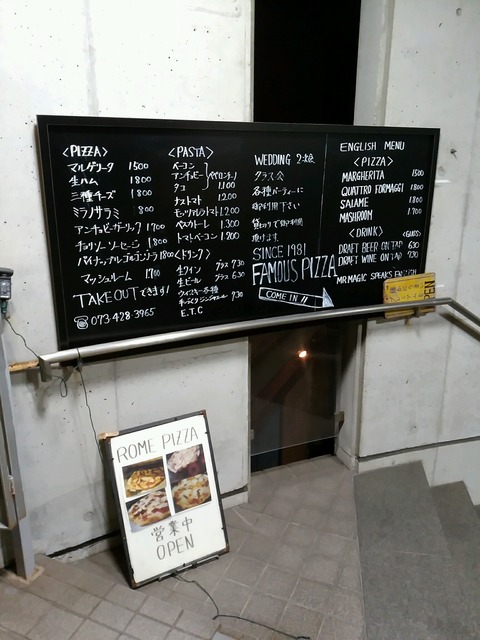 <PIZZA>
マルゲリータ 1500
生ハム 1800
三種チーズ 1800
ミラノサラミ 1800
アンチョビーガーリック 1700
チョリソーソーセージ 1800
パイナップルゴルゴンゾーラ 1800
マッシュルーム 1700
TAKE OUTできます!
☎073-428-3965
<PASTA>
ベーコン
アンチョビー
タコ
ペペロンチーノ
1.100
ナストマト 1.200
モッツァレラトマト 1.200
ペスカトーレ 1.300
トマトベーコン 1.200
<ドリンク>
生ワイン グラス 730
生ビール グラス 630
ウイスキー各種
730
E.T.C
WEDDING 2次会
クラス会
各種パーティーに
御利用下さい
貸切りで御利用
SINCE 1981
FAMOUS PIZZA
COME IN !!
ENGLISH MENU
<PIZZA>
MARGHERITA 1500
QUATTRO FORMAGGI 1800
SALAME 1800
MASHROOM 1700
<DRINK> (GLASS)
DRAFT BEER ON TAP 630
DRAFT WINE ON TAP 730
MR.MAGIC SPEAKS ENGLISH
OPEN
ROME PIZZA
営業中
OPEN